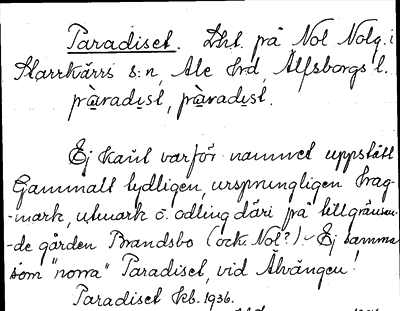 Paradiset. Lht. på Nol Nolg. i
Starrkärrs s:n, Ale hrd, Älfsborgs l.
paradist, paradist.
Ej känt varför namnet uppstått
Gammalt tydligen, ursprungligen hag-
-mark, utmark o. odling däri på tillgränsan-
-de gården Brandsbo (ock. Nol?) - Ej samma
som "norra" Paradiset, vid Älvängen!
Paradiset kb. 1936.